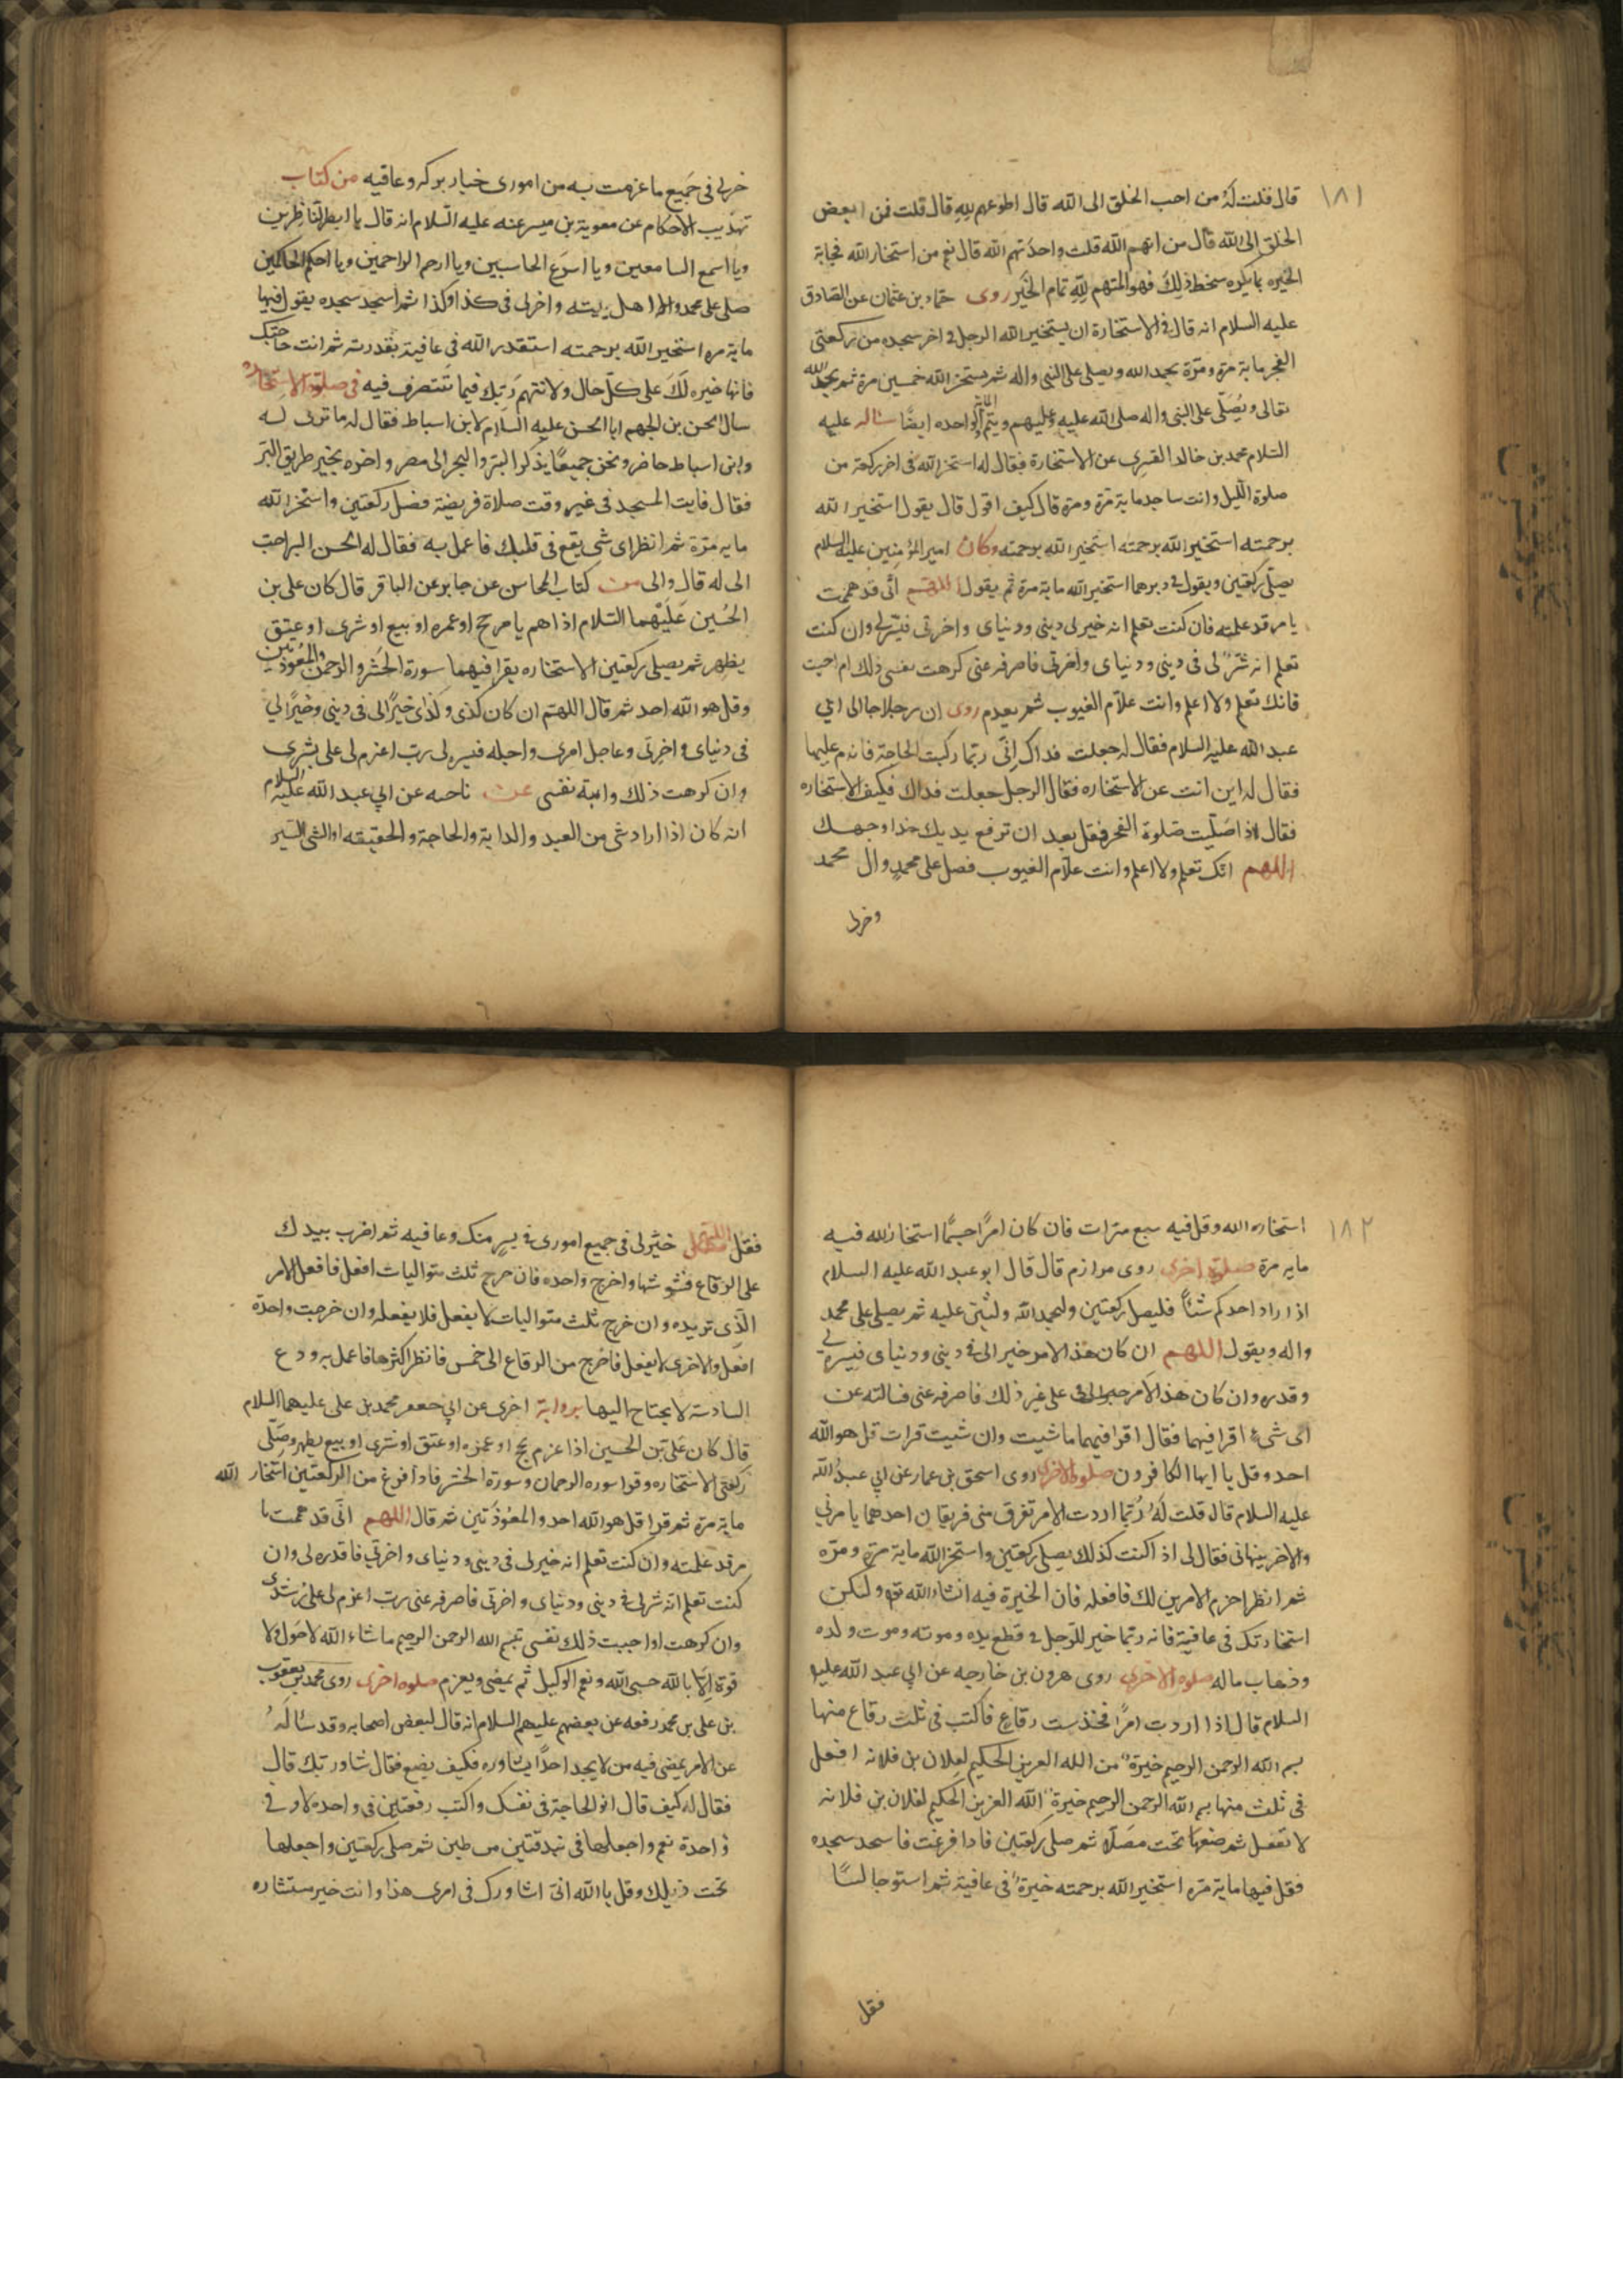 ١٨١
قال قلت له من احب الخلق الى الله قال اطوعهم لله قال قلت فمن ابغض
الخلق الى الله قال من اتهم الله قلت واحد يتهم الله قال نعم من استخار الله فجاءته
الخيره بما يكره سخط ذلك فهو المتهم لله تمام الخير روى حماد بن عثمان عن الصادق
عليه السلام انه قال في الاستخارة ان يستخير الله الرجل في اخر سجده من ركعتي
الفجر ماية مرة ومرة بحمد الله ويصلي على النبي واله ثم يستخر الله خمسين مرة ثم يحمد الله
تعالى ويصلي على النبي واله صلى الله عليه وعليهم ويتم الواحده ايضا ساله عليه
السلام محمد بن خالد القسري عن الاستخارة فقال له استخر الله في اخر ركعة من
صلوة الليل وانت ساجد ماية مرة ومرة قال كيف اقول قال يقول استخير الله
برحمته استخير الله برحمته استخير الله برحمته وكان امير المؤمنين عليه السلام
يصلي ركعتين ويقول في دبرهما استخير الله ماية مرة ثم يقول اللهم اني قد هممت
بامر قد علمته فان كنت تعلم انه خير لي ديني ودنياى واخرتي فيسره لي وان كنت
تعلم انه شر لى فى ديني ودنياى واخرتي فاصرفه عني كرهت نفسى ذلك ام احبت
فانك تعلم ولا اعلم وانت علام الغيوب ثم يعزم روى ان رجلا جا الى ابي
عبد الله عليه السلام فقال له جعلت فداك اني ربما ركبت الحاجة فاندم عليها
فقال له اين انت عن الاستخاره فقال الرجل جعلت فداك فكيف الاستخاره
فقال اذا صليت صلوة الفجر فقل بعد ان ترفع يديك حذا وجهك
اللهم انك تعلم ولا اعلم وانت علام الغيوب فصل على محمد وال محمد
وخرلى
خرلى فى جميع ما عزمت به من امورى خيار بركه وعافيه من كتاب
تهذيب الاحكام عن معوية بن ميسر عنه عليه السلام انه قال يا ابصر الناظرين
ويا اسمع السامعين ويا اسرع الحاسبين ويا ارحم الراحمين ويا احكم الحاكمين
صلى على محمد واله اهل بيته واخرلى فى كذا وكذا ثم اسجد سجده يقول فيها
ماية مره استخير الله برحمته استقدر الله فى عافية بقدرته ثم انت حاجتك
فانها خيره لك على كل حال ولا تتهم ربك فيما تتصرف فيه فى صلوة الاستخاره
سال الحسن بن الجهم ابا الحسن عليه السلام لابن اسباط فقال له ما ترى له
وابن اسباط حاضر ونحن جميعا يذكر البر والبحر الى مصر واخبره بخير طريق البر
فقال فايت المسجد فى غير وقت صلاة فريضة فصل ركعتين واستخر الله
مايه مرة ثم انظر اى شى يقع فى قلبك فاعمل به فقال له الحسن البر احب
الى له قال والى من كتاب المحاسن عن جابر عن الباقر قال كان على بن
الحسين عليهما السلام اذا هم بامر حج او عمره او بيع او شرى او عتق
يطهر ثم يصلى ركعتين الاستخاره يقرا فيهما سورة الحشر والرحمن والمعوذتين
وقل هو الله احد ثم قال اللهم ان كان كذى وكذا خيرا لى فى ديني وخيرا لي
فى دنياى واخرتى وعاجل امرى واجله فيسره لى رب اعزم لى على بشرى
وان كرهت ذلك وابته نفسى عن ناجيه عن ابي عبد الله عليه السلام
انه كان اذا اراد شى من العبد والدابة والحاجة والحقيقه او الشى اليسير
١٨٢
استخاره الله وقل فيه سبع مرات فان كان امرا جسيما استخار الله فيه
مايه مرة صلوة اخرى روى مرازم قال قال ابو عبد الله عليه السلام
اذا اراد احدكم شئا فليصل ركعتين وليحمد الله وليثن عليه ثم يصلي على محمد
واله ويقول اللهم ان كان هذا الامر خير الى في ديني ودنياى فيسره لي
وقدره وان كان هذا الامر على غير ذلك فاصرفه عنى فسالته عن
اى شىء اقرا فيهما فقال اقرا فيهما ما شيت وان شيت قرات قل هو الله
احد وقل يا ايها الكافرون صلوة الاخرى روى اسحق بن عمار عن ابي عبد الله
عليه السلام قال قلت له ربما اردت الامر تفرق منى فريقان احدهما يامرني
والاخر ينهانى فقال لى اذا كنت كذلك يصلى ركعتين واستخر الله ماية مرة ومره
ثم انظر احزم الامرين لك فافعله فان الخيرة فيه انشاء الله تع ولتكن
استخارتك فى عافية فانه ربما خير للرجل في قطع يده وموته وموت ولده
وذهاب ماله صلوه الاخرى روى هرون بن خارجه عن ابي عبد الله عليه
السلام قال اذا اردت امرا فخذ ست رقاع فاكتب فى ثلث رقاع منها
بسم الله الرحمن الرحيم خيرة من الله العزيز الحكيم لفلان بن فلانه افعل
فى ثلث منها بسم الله الرحمن الرحيم خيرة الله العزيز الحكيم لفلان بن فلانه
لا تفعل ثم ضعها تحت مصلاه ثم صلى ركعتين فاذا فرغت فاسجد سجده
فقل فيها ماية مره استخير الله برحمته خيرة فى عافية ثم استو جالسا
فقل
فقل اللهم خير لى فى جميع امورى في يسر منك وعافيه ثم اضرب بيدك
على الرقاع فشوشها واخرج واحده فان خرج ثلث متواليات افعل فافعل الامر
الذى تريده وان خرج ثلث متواليات لا يفعل فلا يفعله وان خرجت واحدة
افعل والاخرى لا يفعل فاخرج من الرقاع الى خمس فانظر اكثرها فاعمل به ودع
السادسة لا يحتاج اليها برواية اخرى عن ابي جعفر محمد بن على عليهما السلام
قال كان على بن الحسين اذا عزم بحج او عمره او عتق او شرى او بيع يطهر وصلى
ركعتى الاستخاره وقرا سوره الرحمان وسورة الحشر فاذا فرغ من الركعتين استخار الله
ماية مرة ثم قرا قل هو الله احد والمعوذتين ثم قال اللهم انى قد هممت با
مر قد علمته وان كنت تعلم انه خير لى فى ديني ودنياى واخرتي فاقدره لى وان
كنت تعلم انه شر لى في دينى ودنياى واخرتى فاصرفه عنى رب اعزم لى على رشدى
وان كرهت او احببت ذلك نفسى بسم الله الرحمن الرحيم ما شاء الله لا حول ولا
قوة الا بالله حسبى الله ونعم الوكيل ثم يمضى ويعزم صلوه اخرى روى محمد بن يعقوب
بن على بن محمد رفعه عن بعضهم عليهم السلام انه قال لبعض اصحابه وقد ساله
عن الامر يمضى فيه من لا يجد احدا يشاوره فكيف يصنع فقال شاور ربك قال
فقال له كيف قال انو الحاجة فى نفسك واكتب رقعتين فى واحده لا وفي
واحدة نعم واجعلها فى بندقتين من طين ثم صلى ركعتين واجعلها
تحت ذيلك وقل يا الله انى اشاورك فى امرى هذا وانت خير مستشاره